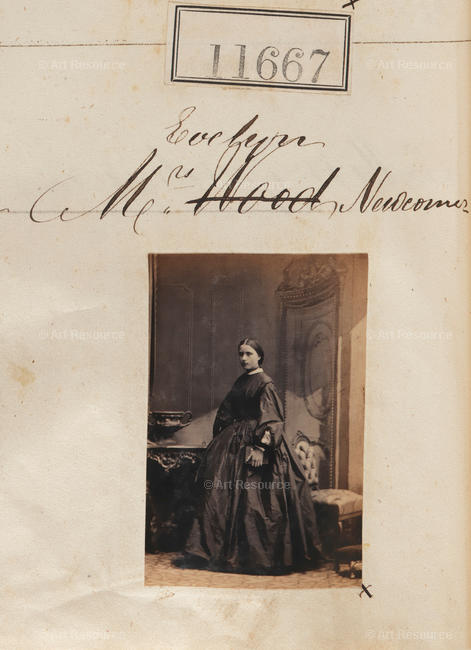 11667
Evelyn
Mrs. Wood Newcomen
© Art Resource
© Art Resource
© Art Resource
© Art Resource
© Art Resource
© Art Resource
© Art Resource